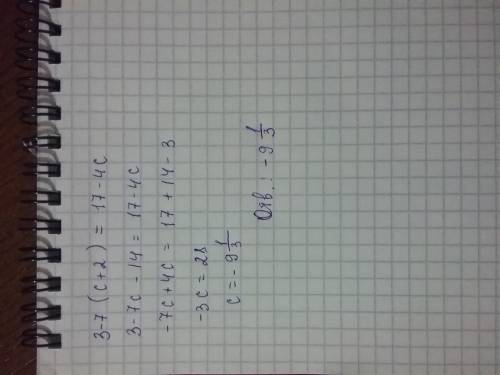 3-7(c+2) = 17-4c
3-7c-14 = 17-4c
-7c+4c = 17+14-3
-3c = 28
c = -9 1/3
Отв.: -9 1/3